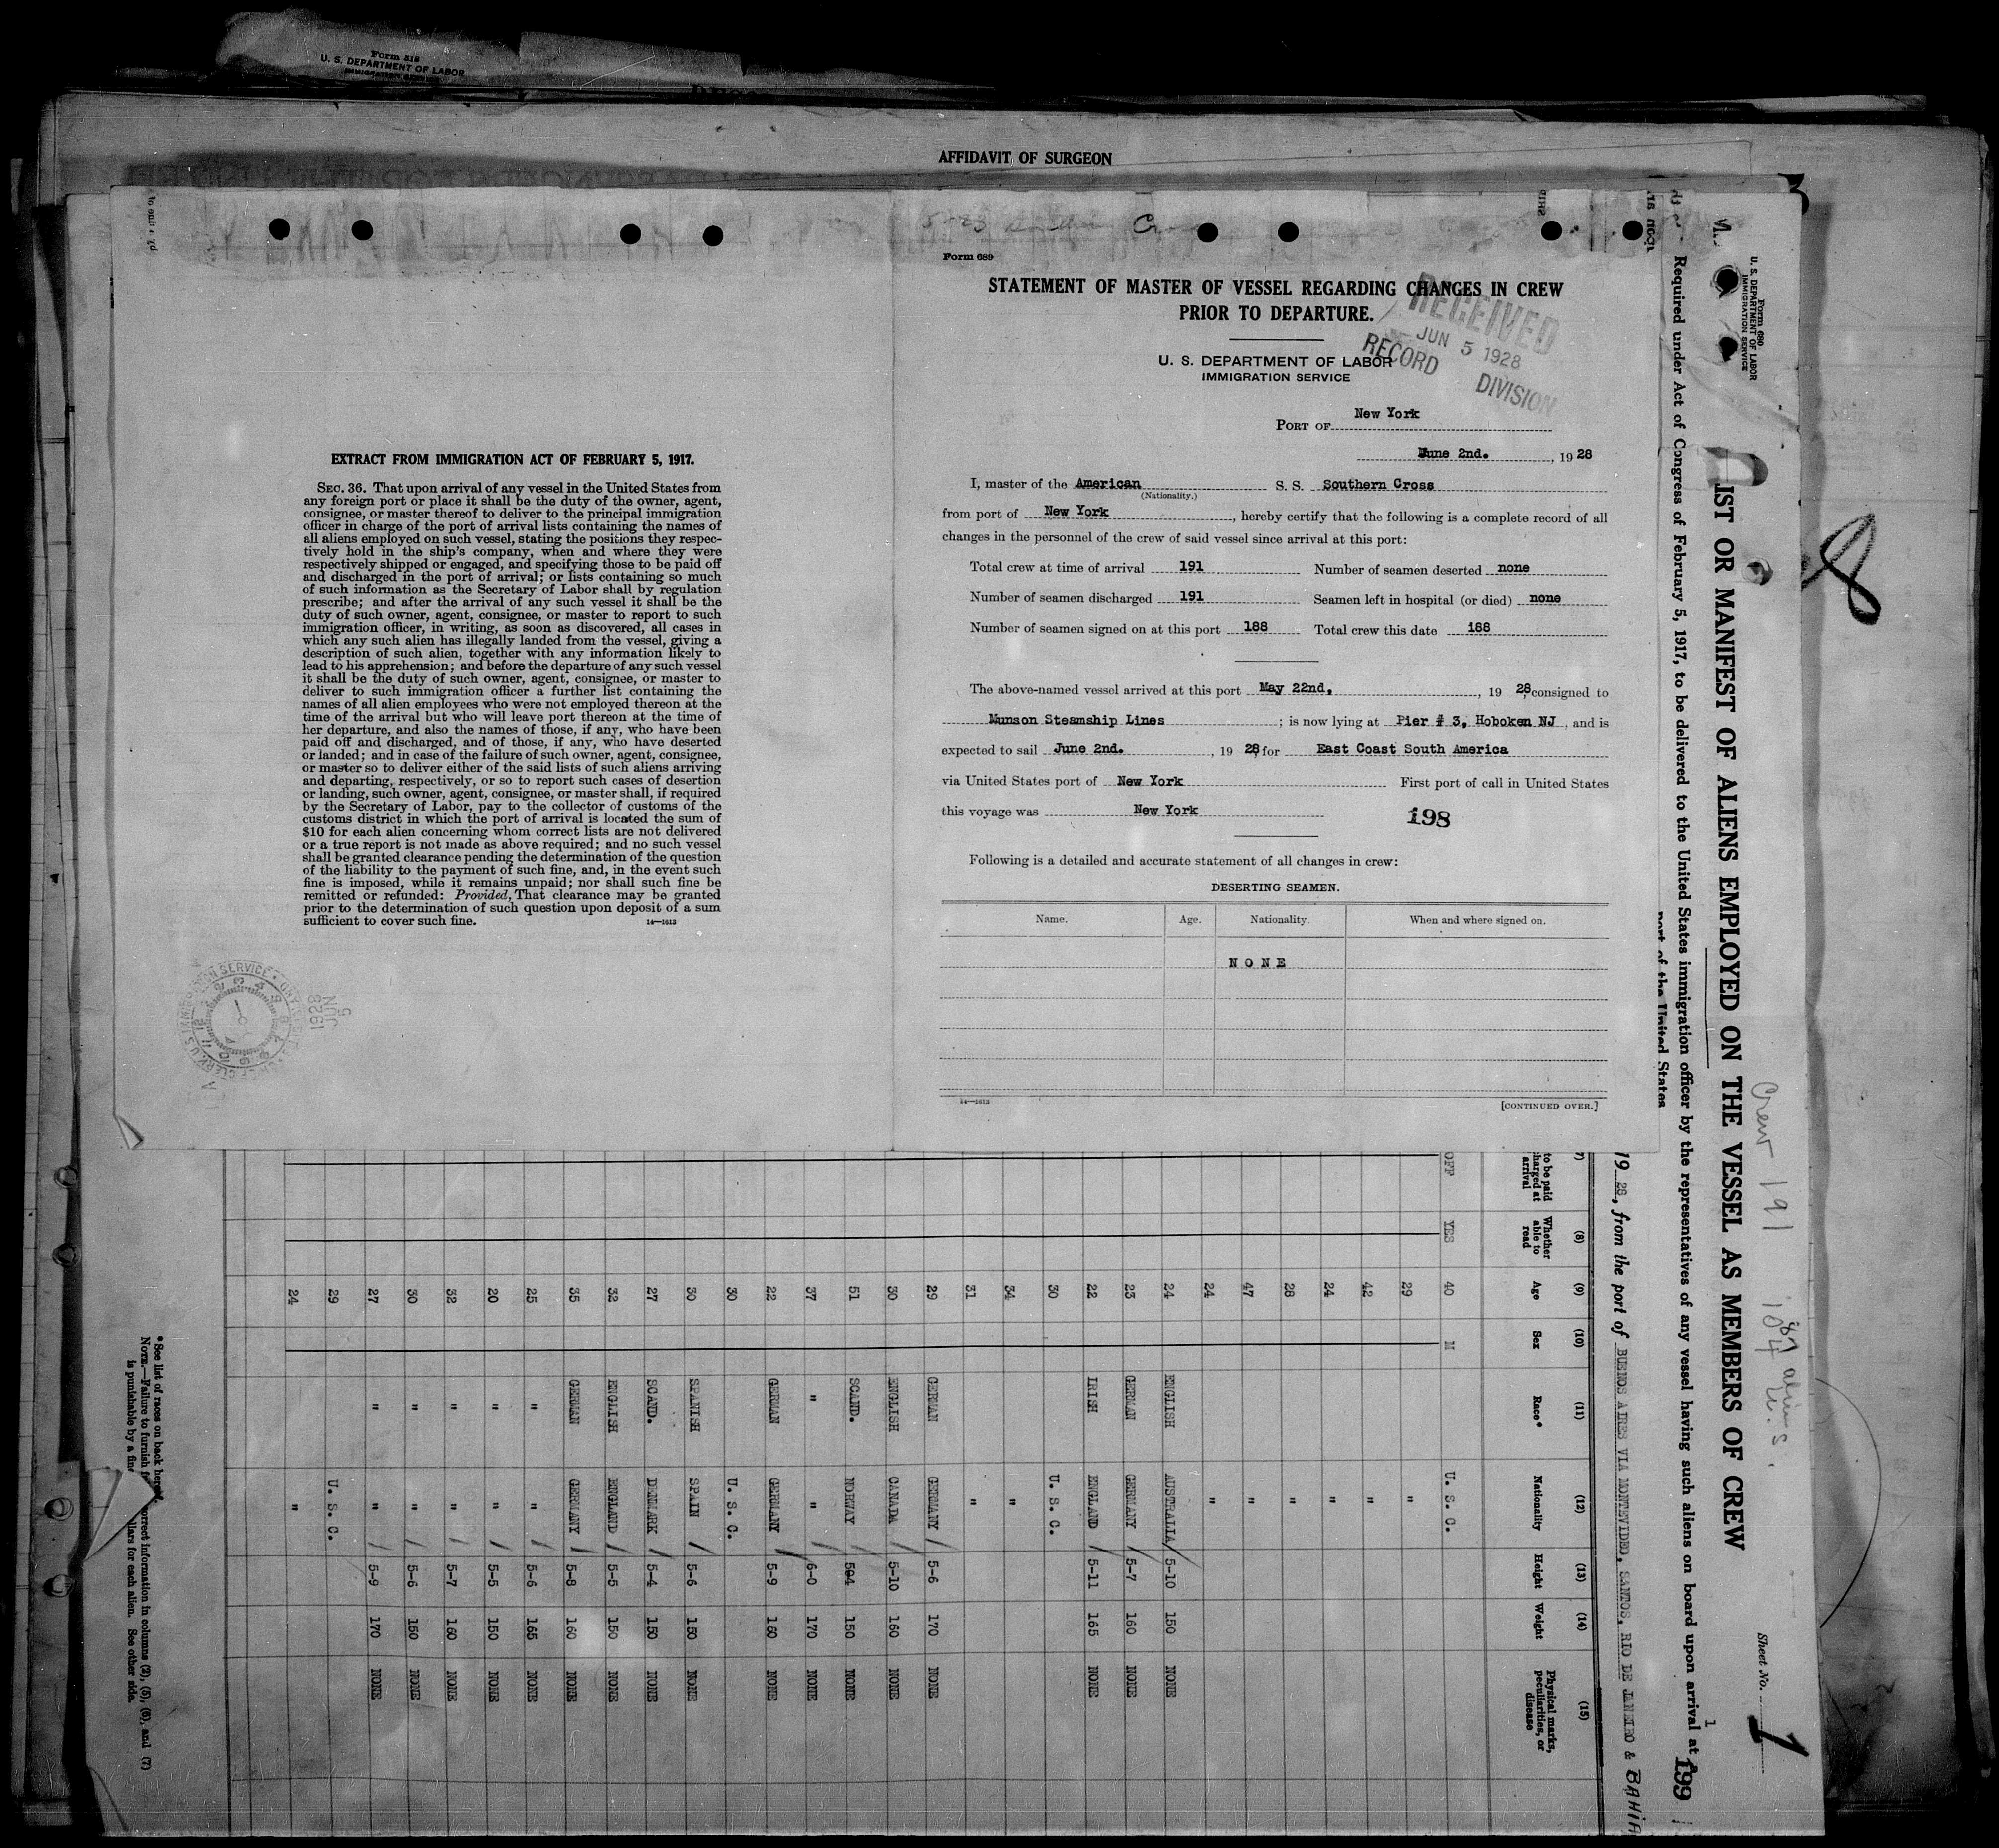 Form 518
U. S. DEPARTMENT OF LABOR
IMMIGRATION SERVICE
AFFIDAVIT OF SURGEON
EXTRACT FROM IMMIGRATION ACT OF FEBRUARY 5, 1917.
SEC. 36. That upon arrival of any vessel in the United States from
any foreign port or place it shall be the duty of the owner, agent,
consignee, or master thereof to deliver to the principal immigration
officer in charge of the port of arrival lists containing the names of
all aliens employed on such vessel, stating the positions they respec-
tively hold in the ship's company, when and where they were
respectively shipped or engaged, and specifying those to be paid off
and discharged in the port of arrival; or lists containing so much
of such information as the Secretary of Labor shall by regulation
prescribe; and after the arrival of any such vessel it shall be the
duty of such owner, agent, consignee, or master to report to such
immigration officer, in writing, as soon as discovered, all cases in
which any such alien has illegally landed from the vessel, giving a
description of such alien, together with any information likely to
lead to his apprehension; and before the departure of any such vessel
it shall be the duty of such owner, agent, consignee, or master to
deliver to such immigration officer a further list containing the
names of all alien employees who were not employed thereon at the
time of the arrival but who will leave port thereon at the time of
her departure, and also the names of those, if any, who have been
paid off and discharged, and of those, if any, who have deserted
or landed; and in case of the failure of such owner, agent, consignee,
or master so to deliver either of the said lists of such aliens arriving
and departing, respectively, or so to report such cases of desertion
or landing, such owner, agent, consignee, or master shall, if required
by the Secretary of Labor, pay to the collector of customs of the
customs district in which the port of arrival is located the sum of
$10 for each alien concerning whom correct lists are not delivered
or a true report is not made as above required; and no such vessel
shall be granted clearance pending the determination of the question
of the liability to the payment of such fine, and, in the event such
fine is imposed, while it remains unpaid; nor shall such fine be
remitted or refunded: Provided, That clearance may be granted
prior to the determination of such question upon deposit of a sum
sufficient to cover such fine.
14—1613
JUN
5
1928
Form 689
STATEMENT OF MASTER OF VESSEL REGARDING CHANGES IN CREW
PRIOR TO DEPARTURE.
RECEIVED
JUN 5 1928
RECORD DIVISION
U. S. DEPARTMENT OF LABOR
IMMIGRATION SERVICE
PORT OF New York
June 2nd., 1928
I, master of the American S. S. Southern Cross
(Nationality.)
from port of New York, hereby certify that the following is a complete record of all
changes in the personnel of the crew of said vessel since arrival at this port:
Total crew at time of arrival 191 Number of seamen deserted none
Number of seamen discharged 191 Seamen left in hospital (or died) none
Number of seamen signed on at this port 188 Total crew this date 188
The above-named vessel arrived at this port May 22nd, , 19 28, consigned to
Munson Steamship Lines ; is now lying at Pier # 3, Hoboken NJ , and is
expected to sail June 2nd. , 19 28, for East Coast South America
via United States port of New York First port of call in United States
this voyage was New York
198
Following is a detailed and accurate statement of all changes in crew:
DESERTING SEAMEN.
Name. Age. Nationality. When and where signed on.
NONE
14—1613
[CONTINUED OVER.]
8
Form 680
U. S. DEPARTMENT OF LABOR
IMMIGRATION SERVICE
Sheet No. 1
Crew 191
IST OR MANIFEST OF ALIENS EMPLOYED ON THE VESSEL AS MEMBERS OF CREW
Required under Act of Congress of February 5, 1917, to be delivered to the United States immigration officer by the representatives of any vessel having such aliens on board upon arrival at
port of the United States
1
199
19 28, from the port of BUENOS AIRES VIA MONTEVIDEO, SANTOS, RIO DE JANEIRO & BAHIA
(8) (9) (10) (11) (12) (13) (14) (15)
to be paid
arrival
Whether able to read Age Sex Race* Nationality Height Weight Physical marks, peculiarities, or disease
OFF YES 40 M U. S. C.
29 "
42 "
24 "
28 "
47 "
24 "
24 ENGLISH AUSTRALIA 5-10 150 NONE
23 GERMAN GERMANY 5-7 160 NONE
22 IRISH ENGLAND 5-11 165 NONE
30 U. S. C.
34 "
31 "
29 GERMAN GERMANY 5-6 170 NONE
30 ENGLISH CANADA 5-10 160 NONE
51 SCAND. NORWAY 504 150 NONE
37 " " 6-0 170 NONE
22 GERMAN GERMANY 5-9 160 NONE
30 U. S. C.
30 SPANISH SPAIN 5-6 150 NONE
27 SCAND. DENMARK 5-4 150 NONE
32 ENGLISH ENGLAND 5-5 150 NONE
35 GERMAN GERMANY 5-8 160 NONE
25 " " 5-6 165 NONE
20 " " 5-5 150 NONE
32 " " 5-7 160 NONE
30 " " 5-6 150 NONE
27 " " 5-9 170 NONE
29 U. S. C.
24 "
*See list of races on back hereof.
NOTE.—Failure to furnish correct information in columns (2), (5), (6), and (7)
is punishable by a fine dollars for each alien. See other side.